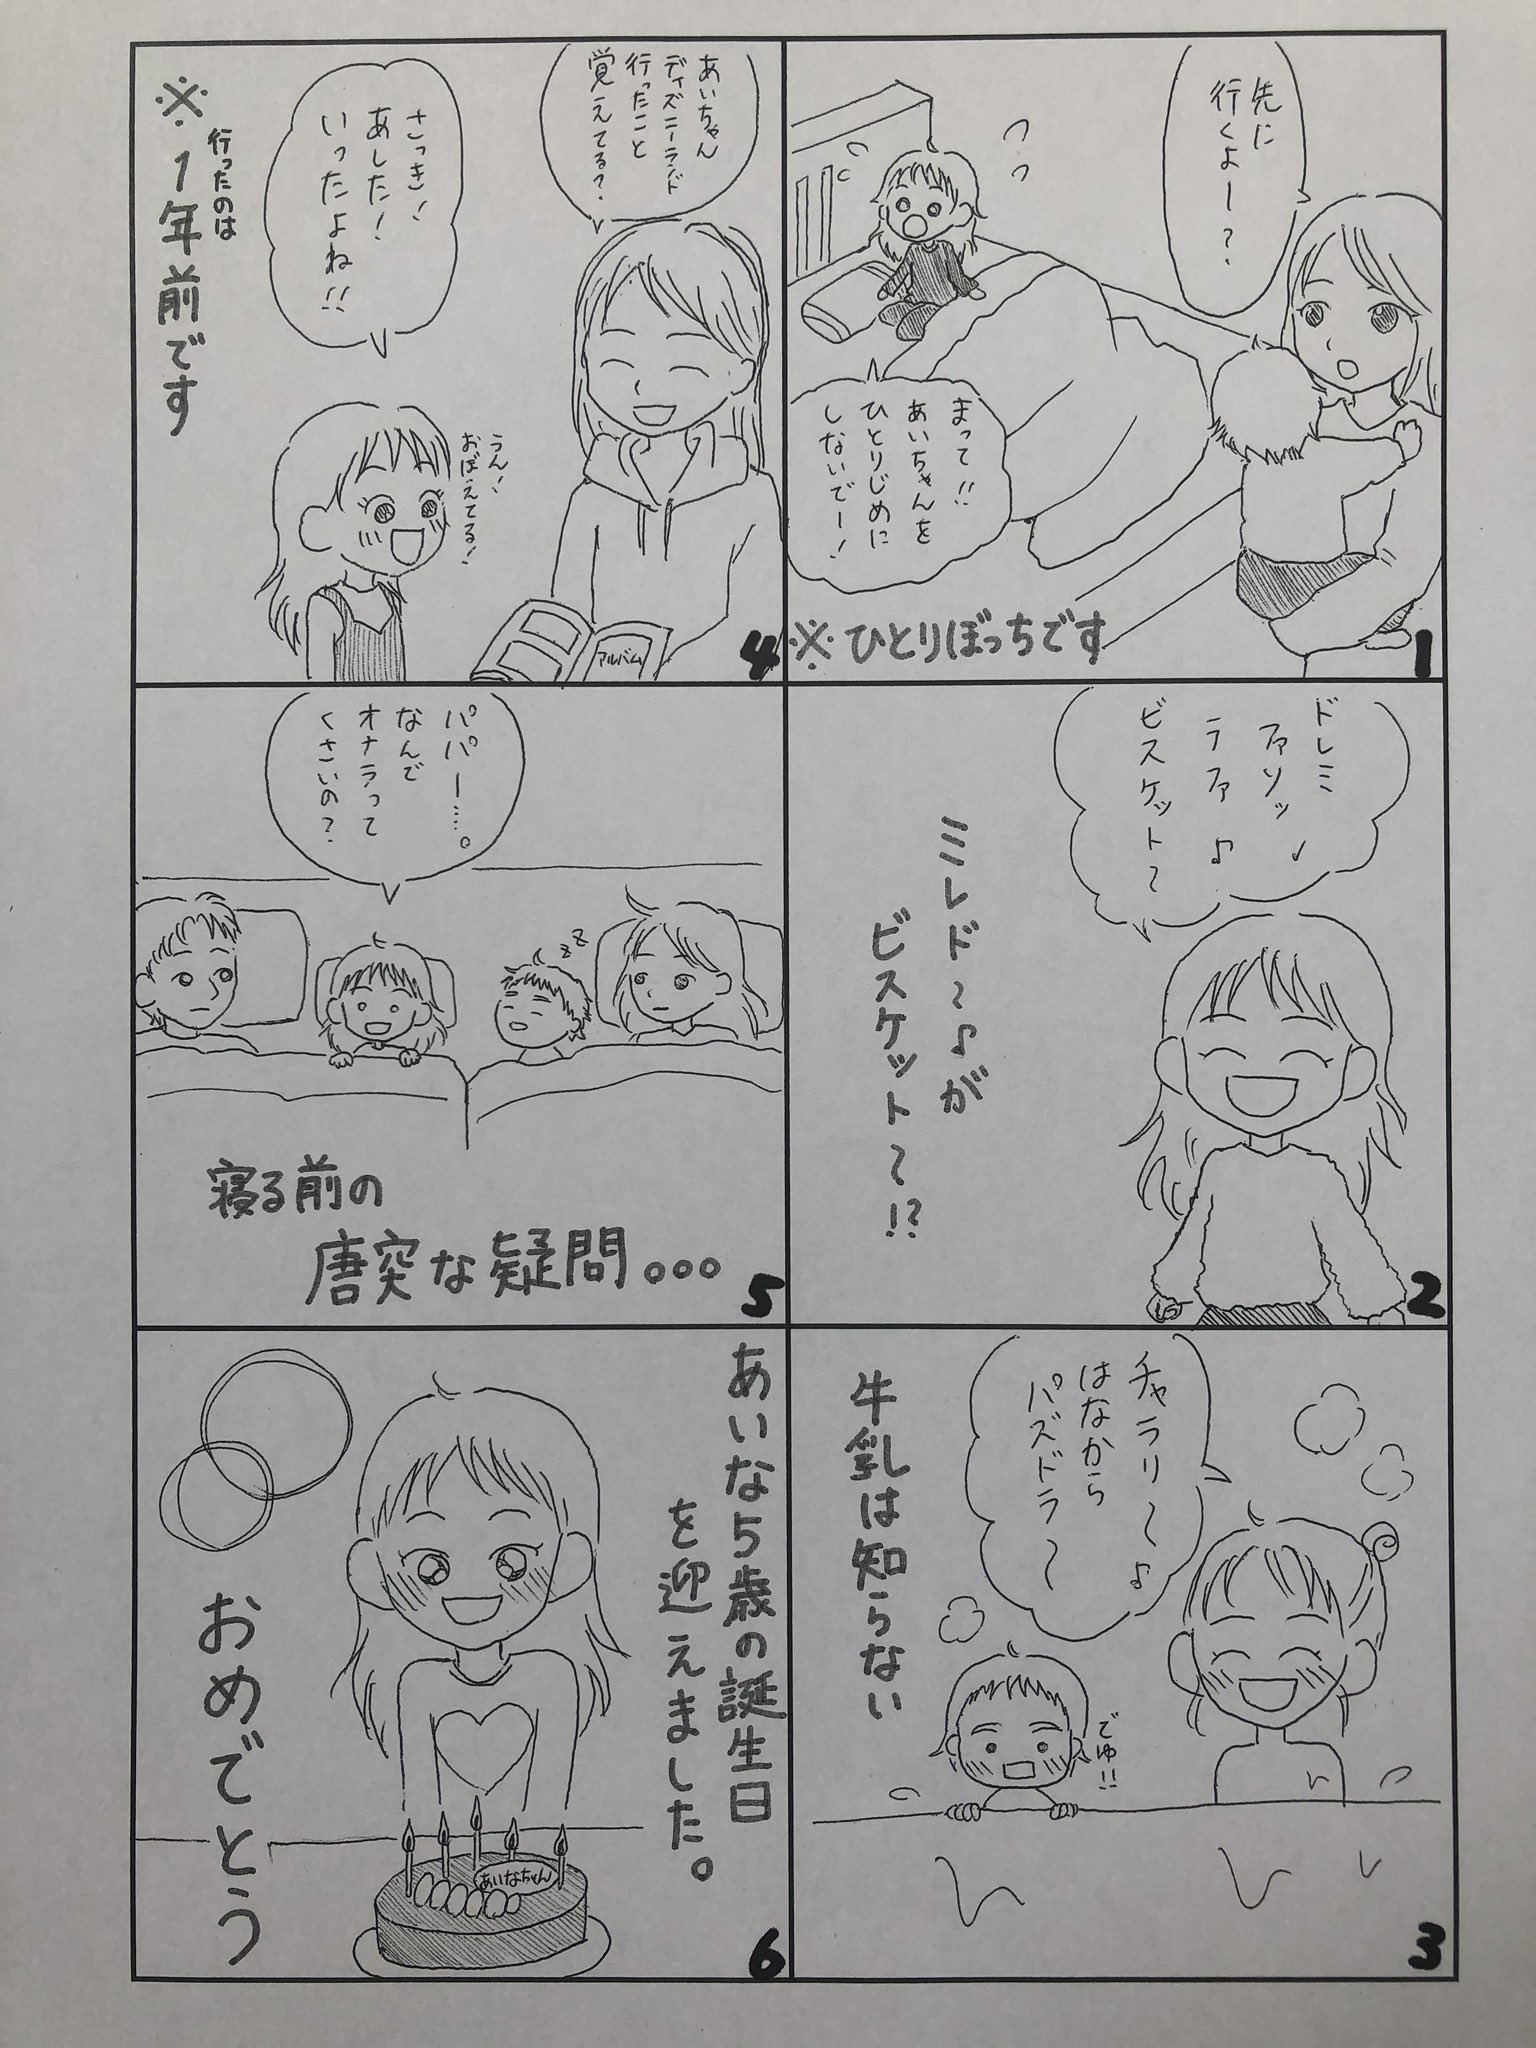 先に
行くよー?
まって!!
あいちゃんを
ひとりじめに
しないでー!
※ひとりぼっちです
1
ドレミ
ファソッ♪
ラファ♪
ビスケット〜
ミレド〜♪が
ビスケット〜!?
2
チャラリ〜♪
はなから
パズドラ〜
でゅ!!
牛乳は知らない
3
あいちゃん
ディズニーランド
行ったこと
覚えてる?
うん!
おぼえてる!
さっき!
あした!
いったよね!!
アルバム
※行ったのは
1年前です
4
パパー……。
なんで
オナラって
くさいの?
zzz
寝る前の
唐突な疑問。。。
5
あいな5歳の誕生日
を迎えました。
おめでとう
あいなちゃん
6